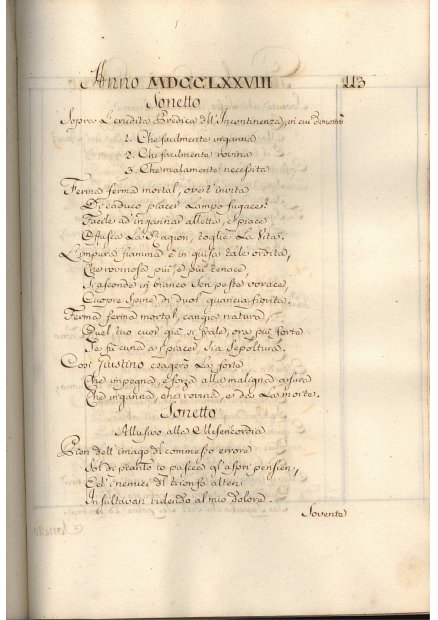 Anno MDCCLXXVIII 113
Sonetto
Sopra L'erudita Predica dell'Incontinenza, in cui dimostrò
1. Che facilmente inganna
2. Che facilmente rovina
3. Che malamente necessita
Ferma ferma mortal, ove t'invita
Di caduco piacer Lampo fugace:
Facile ad ingannar alletta, e piace
Offusca La Ragion, toglie La Vita.
L'impura fiamma è in guisa tale ordita,
Che rovinosa più, e più tenace,
Nasconde in bianco Sen peste vorace,
Cuopre Spine di duol guancia fiorita.
Ferma ferma mortal, cangia natura,
Quel tuo cuor già sì frale, ora più forte
Se fu cuna a' piacer, sia Sepoltura.
Così Justino esagerò La forte
Che impegna, e sforza alla maligna arsura
Che inganna, che rovina, e dà La morte.
Sonetto
Allusivo alla Misericordia
Pien dell'imago di commesso errore
Sol di pianto io pascea gl'aspri pensieri,
Ed i nemici del trionfo alteri
Insultavan ridendo al mio dolore.
Sovente